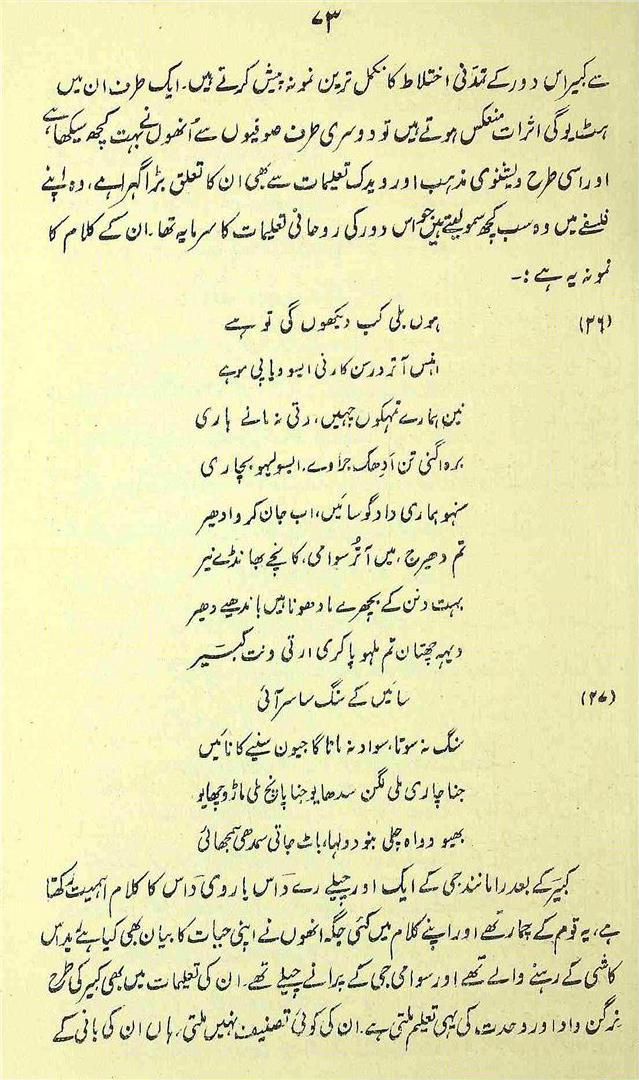 ۷۳
سے کبیر اس دور کے تمدنی اختلاط کا مکمل ترین نمونہ پیش کرتے ہیں۔ ایک طرف ان میں
ہٹ یوگی اثرات منعکس ہوتے ہیں تو دوسری طرف صوفیوں سے اُنھوں نے بہت کچھ سیکھا ہے
اور اسی طرح ویشنوی مذہب اور ویدک تعلیمات سے بھی ان کا تعلق بڑا گہرا ہے، وہ اپنے
فلسفے میں وہ سب کچھ سمو لیتے ہیں جو اس دور کی روحانی تعلیمات کا سرمایہ تھا۔ ان کے کلام کا
نمونہ یہ ہے :۔
(۲۶) ہوں بلی کب دیکھوں گی تو ہے
اہنس آتر درسن کارنی ایسو ویاپی موہے
نین ہمارے تمہکوں چہیں، رتی نہ مانے ہاری
برہ اگنی تن اَدھک جراوے۔ ایسو لیہو بچاری
سنہو ہماری داد گوسائیں، اب جان کرو ادھیر
تم دھیرج، میں آتُر سوامی، کانچے بھانڈے نیر
بہت دنن کے بچھرے مادھو نا ہیں باندھے دھیر
دیہہ چھتان تم ملہو پاکری ارتی ونت کبیر
(۲۷) سائیں کے سنگ ساسر آئی
سنگ نہ سوتا، سواد نہ مانا گا جیون سنپے کا نائیں
جنا چاری ملی لگن سدھایو جنا پانچ ملی ماڑو چھایو
بھیو وواہ چلی بنو دولہا، باٹ جاتی سمدھی سمجھائی
کبیر کے بعد رامانند جی کے ایک اور چیلے رے داس یا روی داس کا کلام اہمیت رکھتا
ہے، یہ قوم کے چمار تھے اور اپنے کلام میں کئی جگہ انھوں نے اپنی حیات کا بیان بھی کیا ہے
کاشی کے رہنے والے تھے اور سوامی جی کے پرانے چیلے تھے۔ ان کی تعلیمات میں بھی کبیر کی طرح
نِرگن واد اور وحدت کی ہی تعلیم ملتی ہے۔ ان کی کوئی تصنیف نہیں ملتی، ہاں ان کی بانی کے